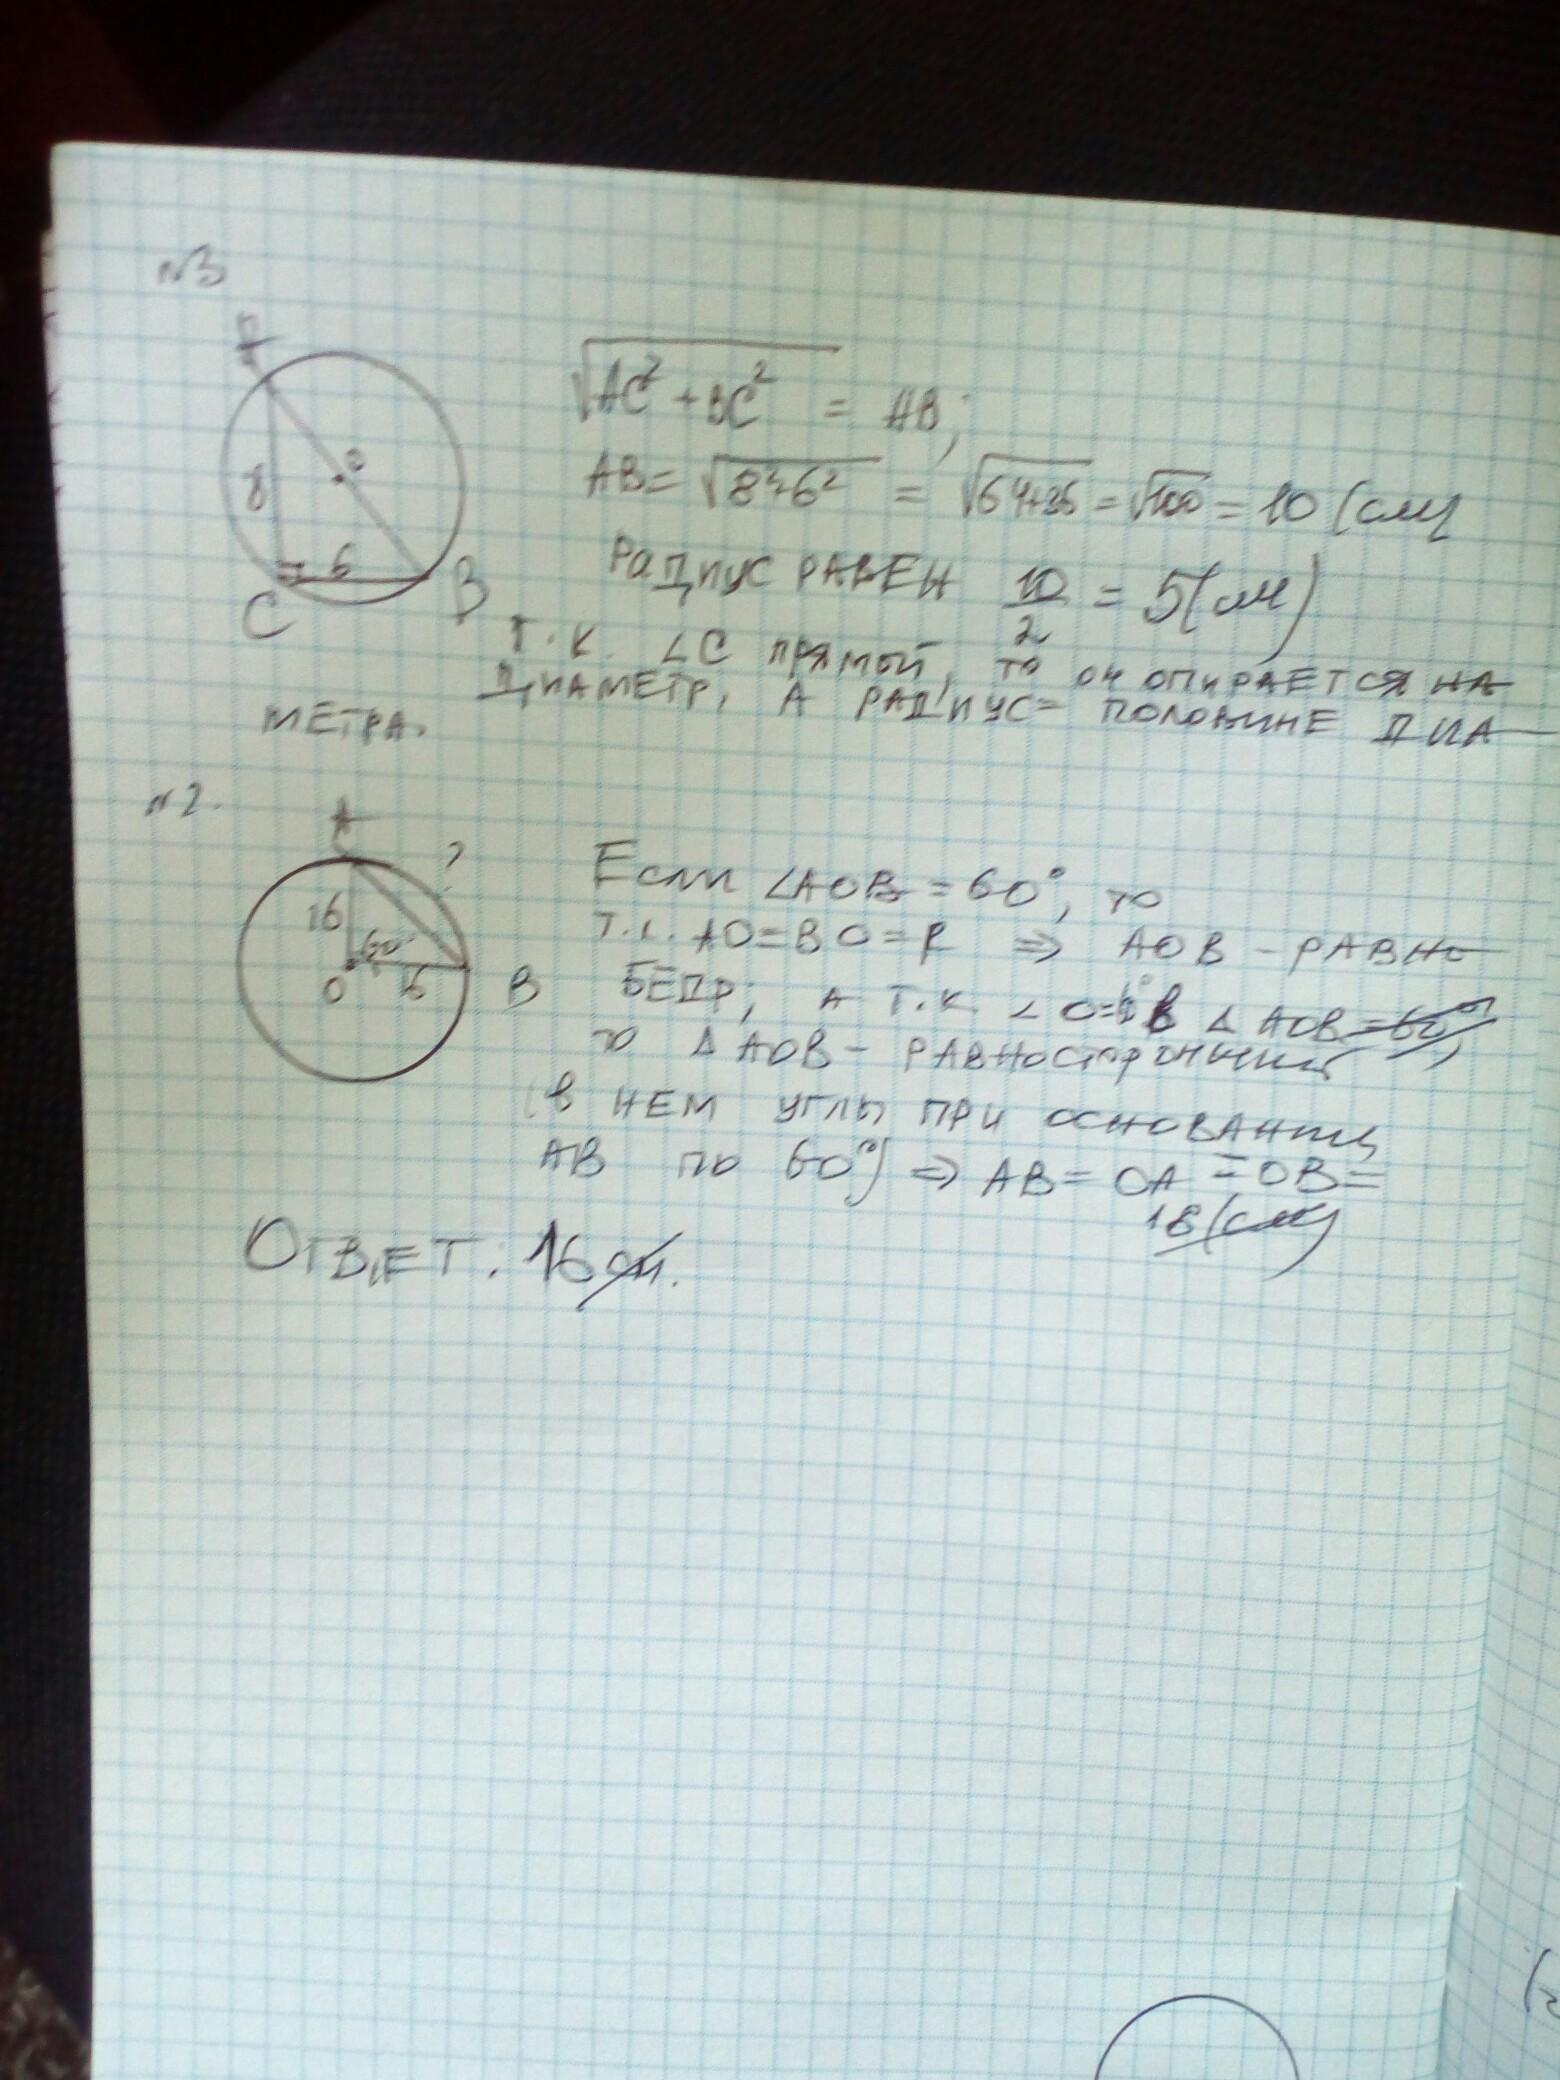 №3
A
√AC² + BC² = AB;
8
O
AB = √8²+6² = √64+36 = √100 = 10 (см)
6
C
B
РАДИУС РАВЕН 10/2 = 5 (см)
Т.К. ∠C ПРЯМОЙ, ТО ОН ОПИРАЕТСЯ НА
ДИАМЕТР, А РАДИУС = ПОЛОВИНЕ ДИА-
МЕТРА.
№2.
A
?
Если ∠AOB = 60°, то
16
60°
т.к. AO = BO = R ⇒ AOB - РАВНО
O
B
БЕДР; А Т.К. ∠O= В Δ AOB = 60°,
то Δ AOB - РАВНОСТОРОННИЙ
(В НЕМ УГЛЫ ПРИ ОСНОВАНИИ
AB ПО 60°) ⇒ AB = OA = OB =
16 (см)
ОТВЕТ: 16 см.